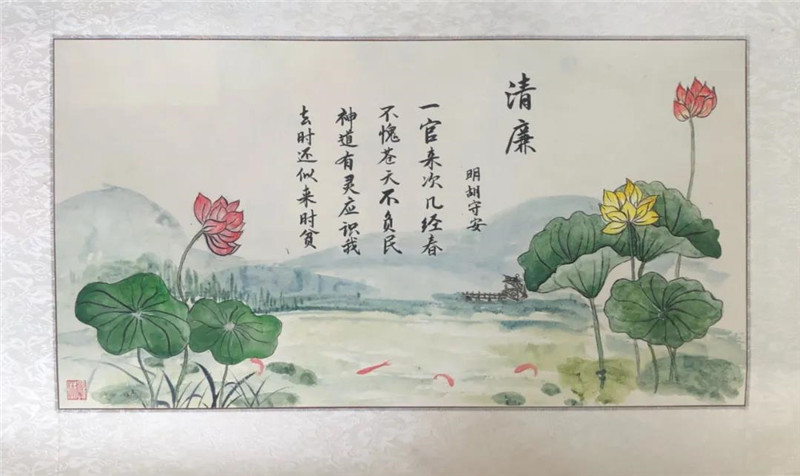 清廉
明胡守安
一官来次几经春
不愧苍天不负民
神道有灵应识我
去时还似来时贫